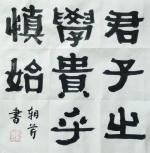 君子之
學貴乎
慎始
朝菁書